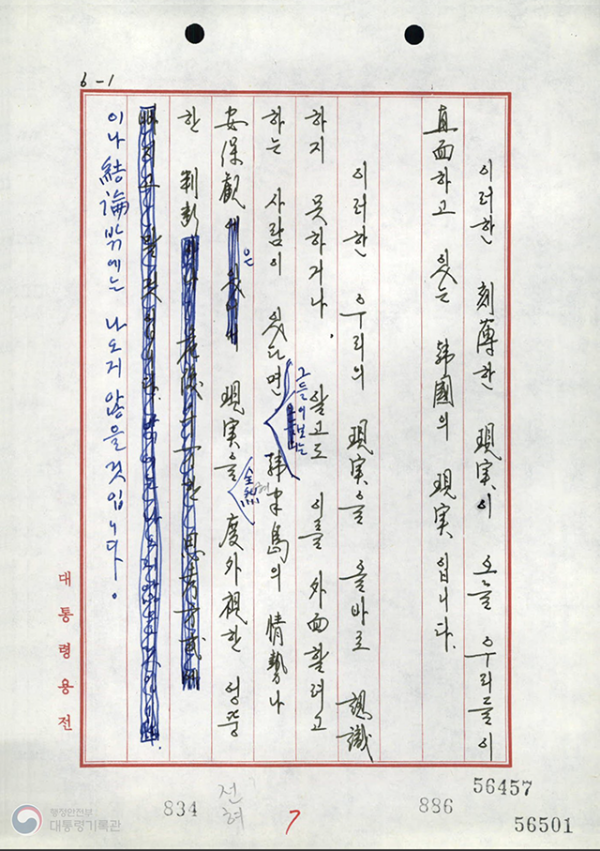 6-1
이러한 刻薄한 現実이 오늘 우리들이
直面하고 있는 韓國의 現実입니다.
이러한 우리의 現実을 올바로 認識
하지 못하거나, 알고도 이를 外面할려고
하는 사람이 있다면 그들이 보는 韓半島의 情勢나
安保觀은 現実을 全然 度外視한 엉뚱
한 判斷
이나 結論밖에는 나오지 않을것입니다.
대통령용전
834
전혀
7
886
56457
56501
행정안전부
대통령기록관